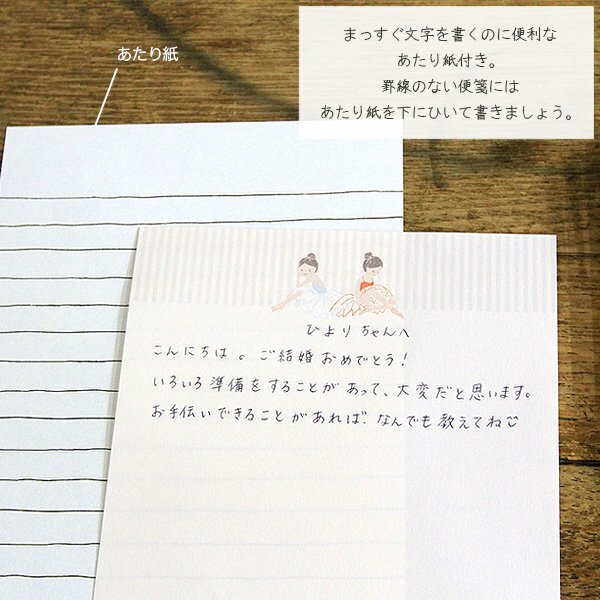 まっすぐ文字を書くのに便利な
あたり紙付き。
罫線のない便箋には
あたり紙を下にひいて書きましょう。
あたり紙
ひよりちゃんへ
こんにちは。ご結婚おめでとう!
いろいろ準備をすることがあって、大変だと思います。
お手伝いできることがあれば なんでも教えてね